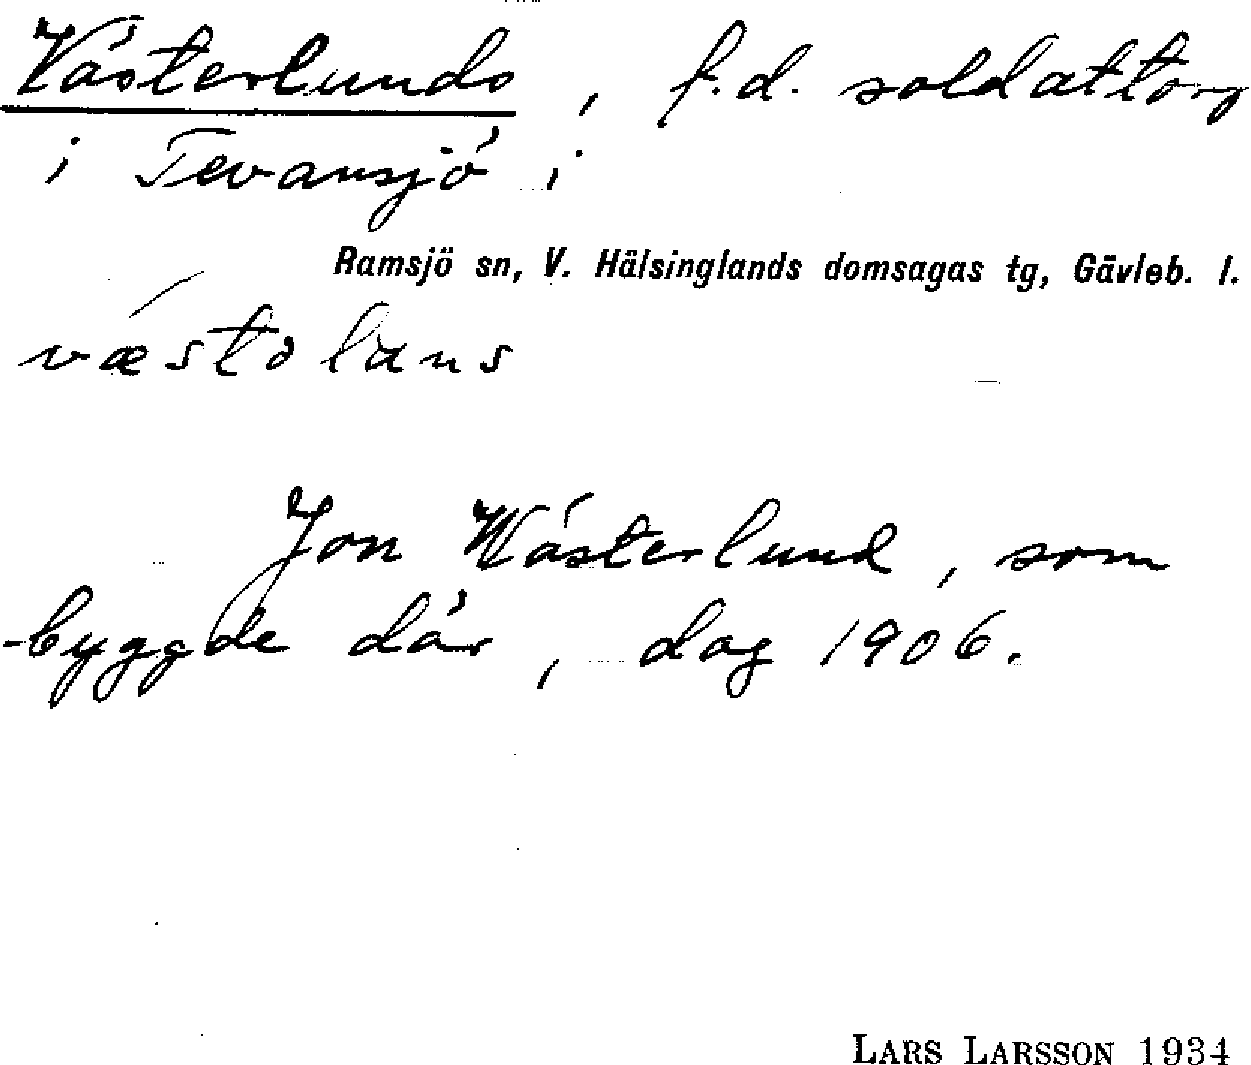 Västerlunds, f.d. soldattorp
i Tevansjö i
Ramsjö sn, V. Hälsinglands domsagas tg, Gävleb. l.
væstəlans
Jon Wästerlund, som
byggde där, dog 1906.
LARS LARSSON 1934